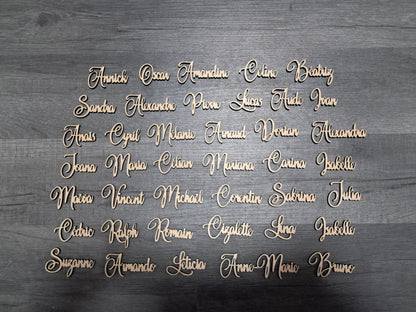 Annick Oscar Amandine Céline Béatriz
Sandra Alexandre Pierre Lucas Aude Ivan
Anaïs Cyril Mélanie Arnaud Dorian Alexandra
Joana Maria Célian Mariana Carina Isabelle
Maëva Vincent Mickaël Corentin Sabrina Julia
Cédric Ralph Romain Cizalette Lina Isabelle
Suzanne Armando Léticia Anne-Marie Bruno